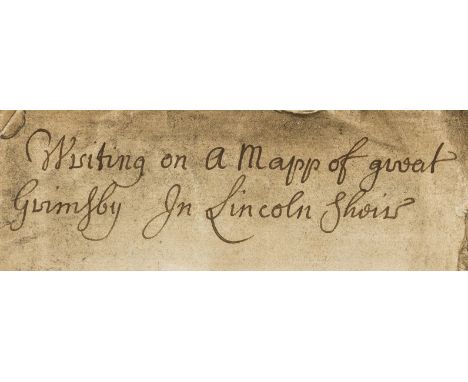 Writing on A Mapp of great
Grimsby In Lincoln Sheir